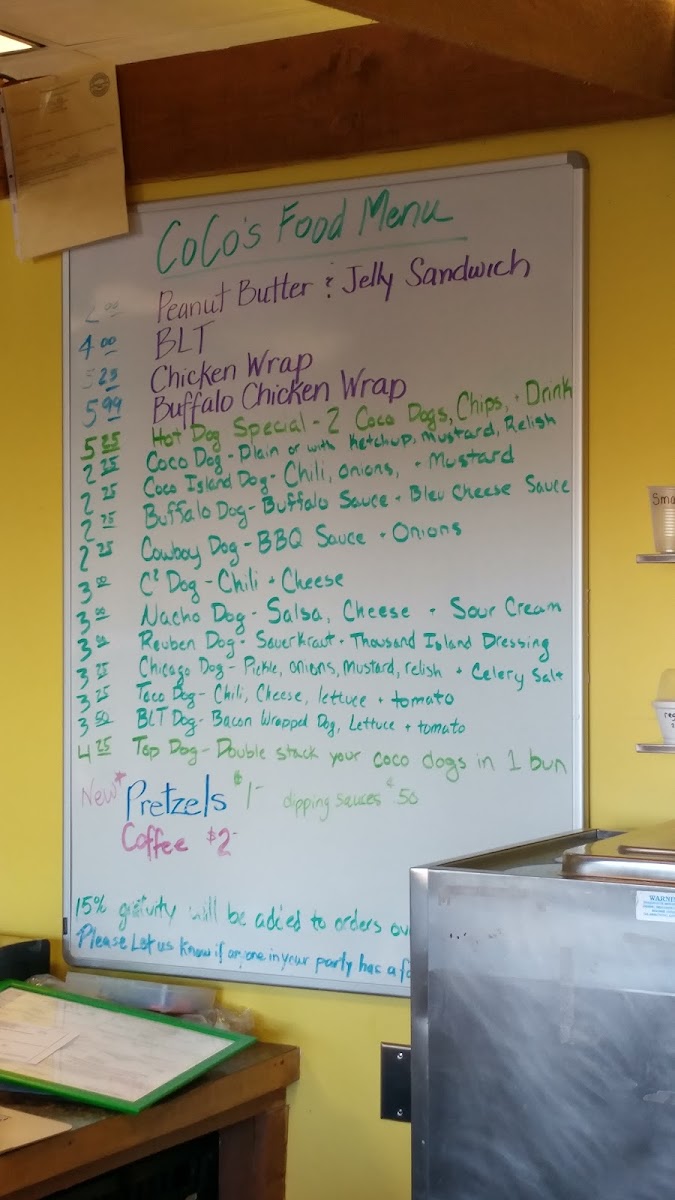 CoCo's Food Menu
2 00 Peanut Butter & Jelly Sandwich
4 00 BLT
5 25 Chicken Wrap
5 99 Buffalo Chicken Wrap
5 25 Hot Dog Special - 2 Coco Dogs, Chips, + Drink
2 25 Coco Dog - Plain or with Ketchup, Mustard, Relish
2 25 Coco Island Dog - Chili, onions, + Mustard
2 75 Buffalo Dog - Buffalo Sauce + Bleu Cheese Sauce
2 25 Cowboy Dog - BBQ Sauce + Onions
3 00 C² Dog - Chili + Cheese
3 00 Nacho Dog - Salsa, Cheese + Sour Cream
3 00 Reuben Dog - Sauerkraut + Thousand Island Dressing
3 25 Chicago Dog - Pickle, onions, mustard, relish + Celery Salt
3 25 Taco Dog - Chili, Cheese, lettuce + tomato
3 50 BLT Dog - Bacon Wrapped Dog, Lettuce + tomato
4 25 Top Dog - Double stack your coco dogs in 1 bun
New* Pretzels $1- dipping sauces $.50
Coffee $2-
15% gratuity will be added to orders
Please Let us know if anyone in your party has a
WARNI